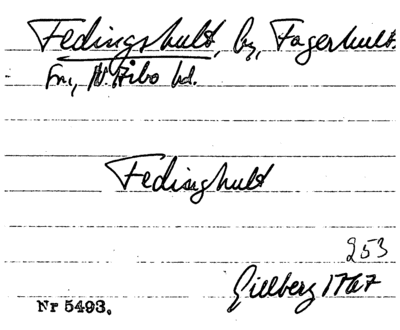 Fedingshult, by, Fagerhults
sn, N. Åsbo hd.
Fedinghult
253
Gillberg 1767
Nr 5493.